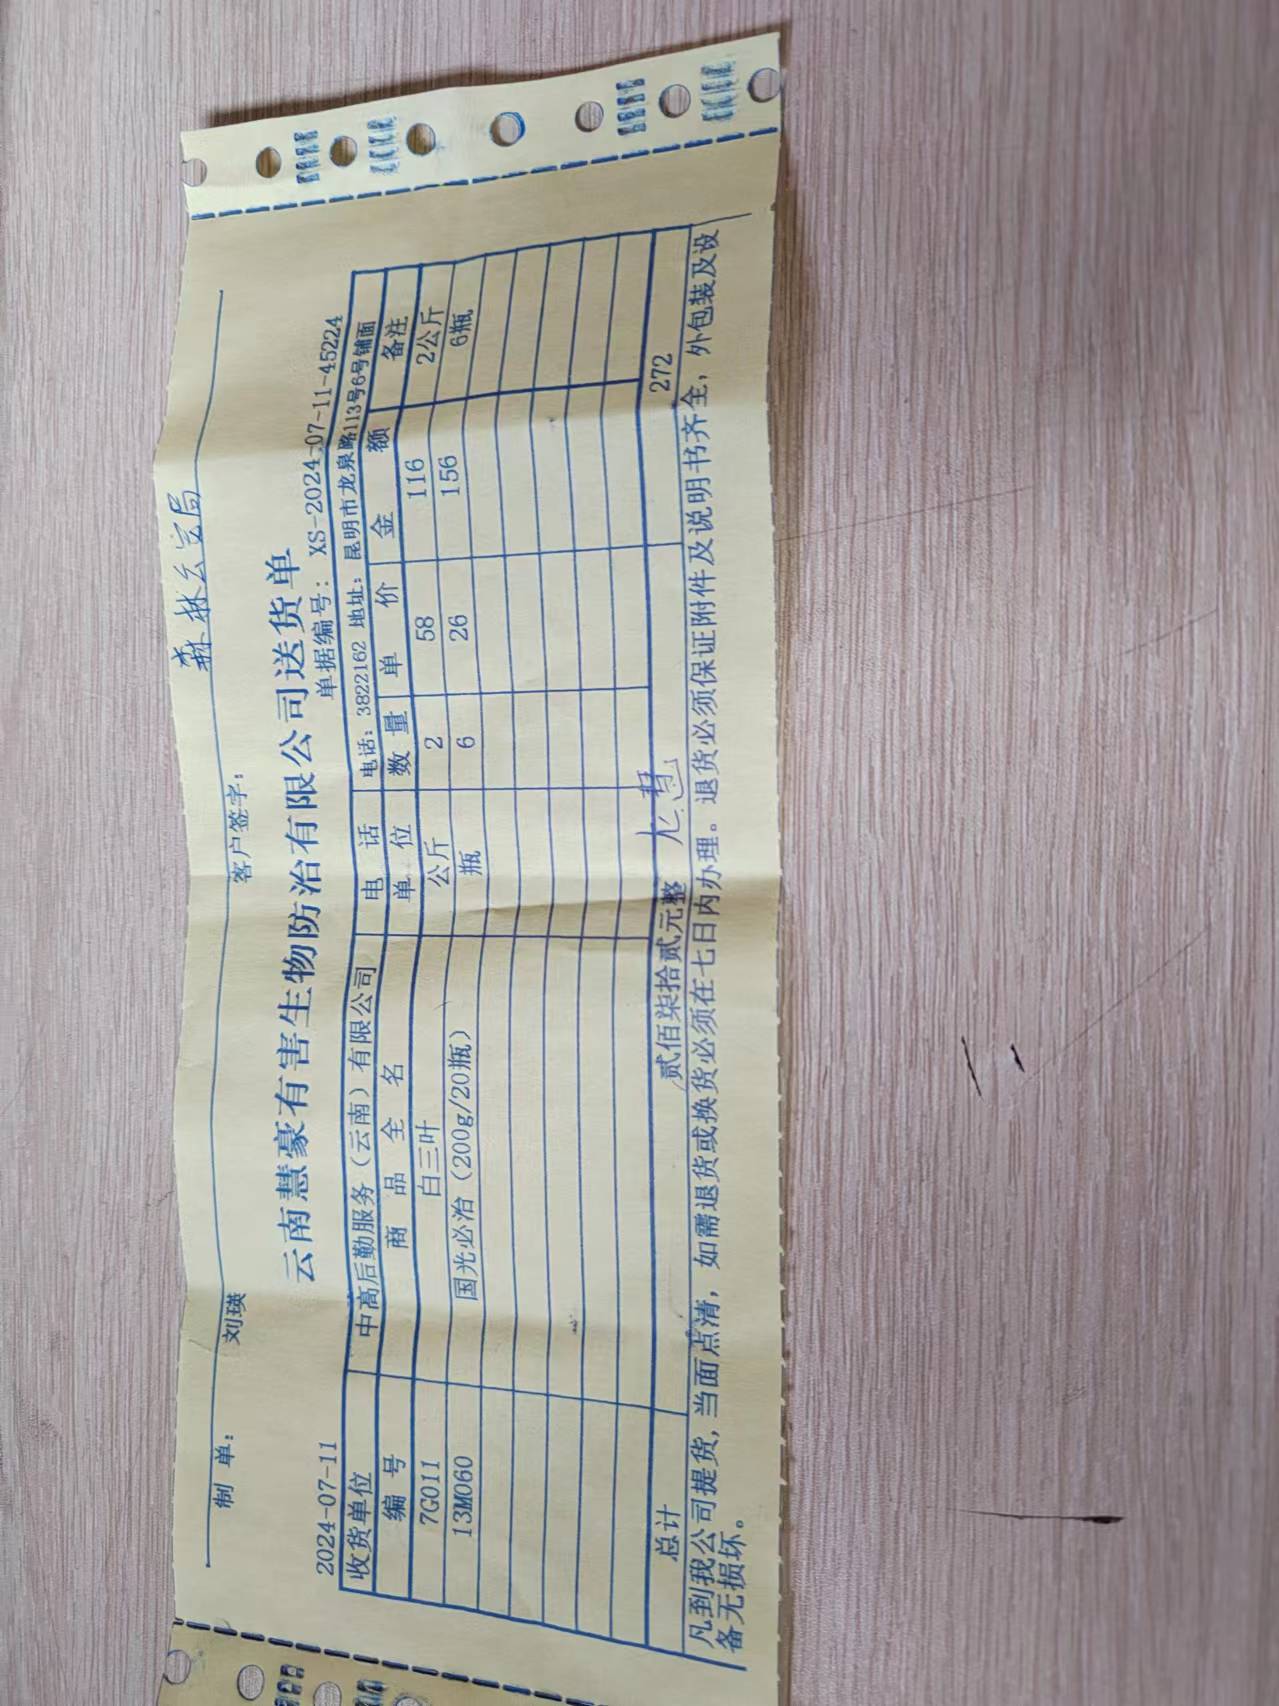 森林公安局
制 单： 刘瑛 客户签字：
云南慧豪有害生物防治有限公司送货单
2024-07-11 单据编号： XS-2024-07-11-45224
收货单位 中高后勤服务（云南）有限公司 电 话 电话：3822162 地址：昆明市龙泉路113号6号铺面
编 号 商 品 全 名 单 位 数 量 单 价 金 额 备注
7G011 白三叶 公斤 2 58 116 2公斤
13M060 国光必治（200g/20瓶） 瓶 6 26 156 6瓶
总计 贰佰柒拾贰元整 272
凡到我公司提货，当面点清，如需退货或换货必须在七日内办理。退货必须保证附件及说明书齐全，外包装及设
备无损坏。